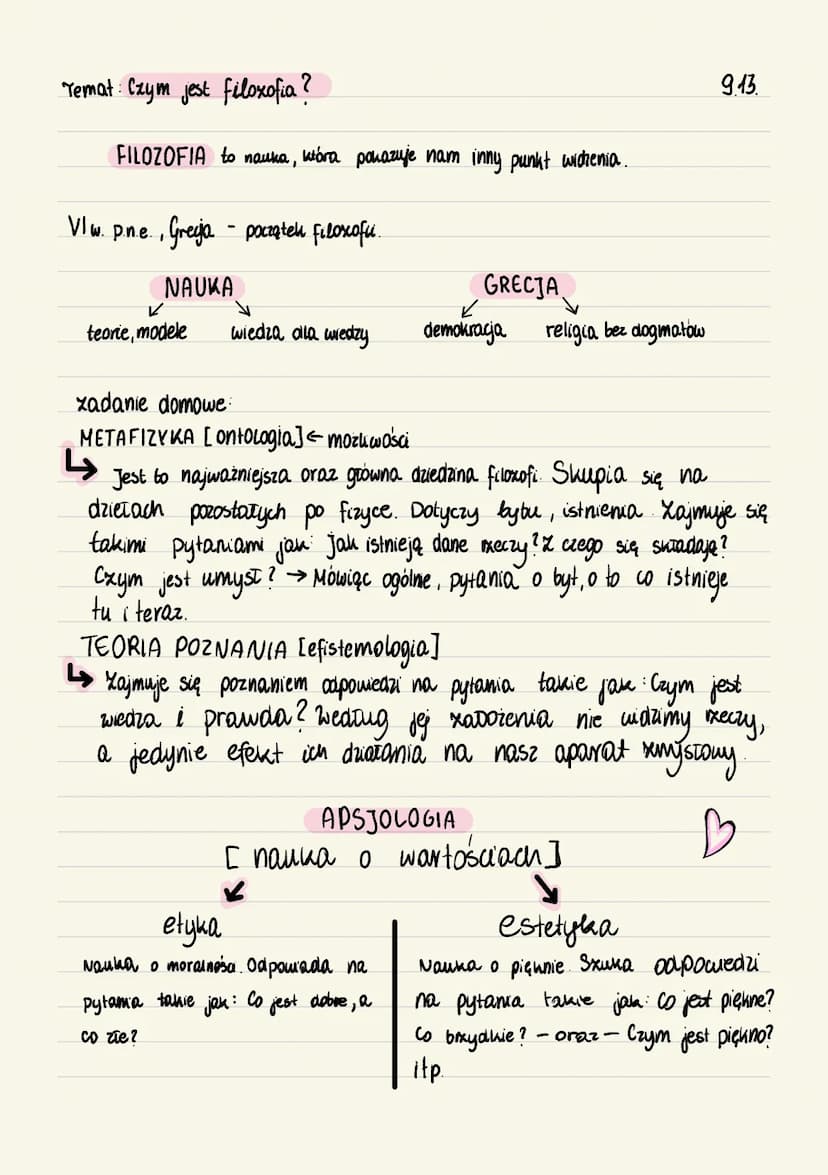 Temat: Czym jest filozofia? 9.13.
FILOZOFIA to nauka, która pokazuje nam inny punkt widzenia.
VI w. p.n.e., Grecja - początek filozofii.
NAUKA GRECJA
teorie, modele wiedza dla wiedzy demokracja religia bez dogmatów
zadanie domowe:
METAFIZYKA [ontologia] ← możliwości
↳ Jest to najważniejsza oraz główna dziedzina filozofi. Skupia się na
dziełach pozostałych po fizyce. Dotyczy bytu, istnienia. Zajmuje się
takimi pytaniami jak: jak istnieją dane rzeczy? Z czego się składają?
Czym jest umysł? → Mówiąc ogólne, pytania o byt, o to co istnieje
tu i teraz.
TEORIA POZNANIA [efistemologia]
↳ Zajmuje się poznaniem odpowiedzi na pytania takie jak: Czym jest
wiedza i prawda? Według jej założenia nie widzimy rzeczy,
a jedynie efekt ich działania na nasz aparat zmysłowy.
APSJOLOGIA
[nauka o wartościach]
etyka
Nauka o moralności. Odpowiada na
pytania takie jak: Co jest dobre, a
co złe?
estetyka
Nauka o pięknie. Szuka odpowiedzi
na pytania takie jak: Co jest piękne?
Co brzydkie? - oraz - Czym jest piękno?
itp.